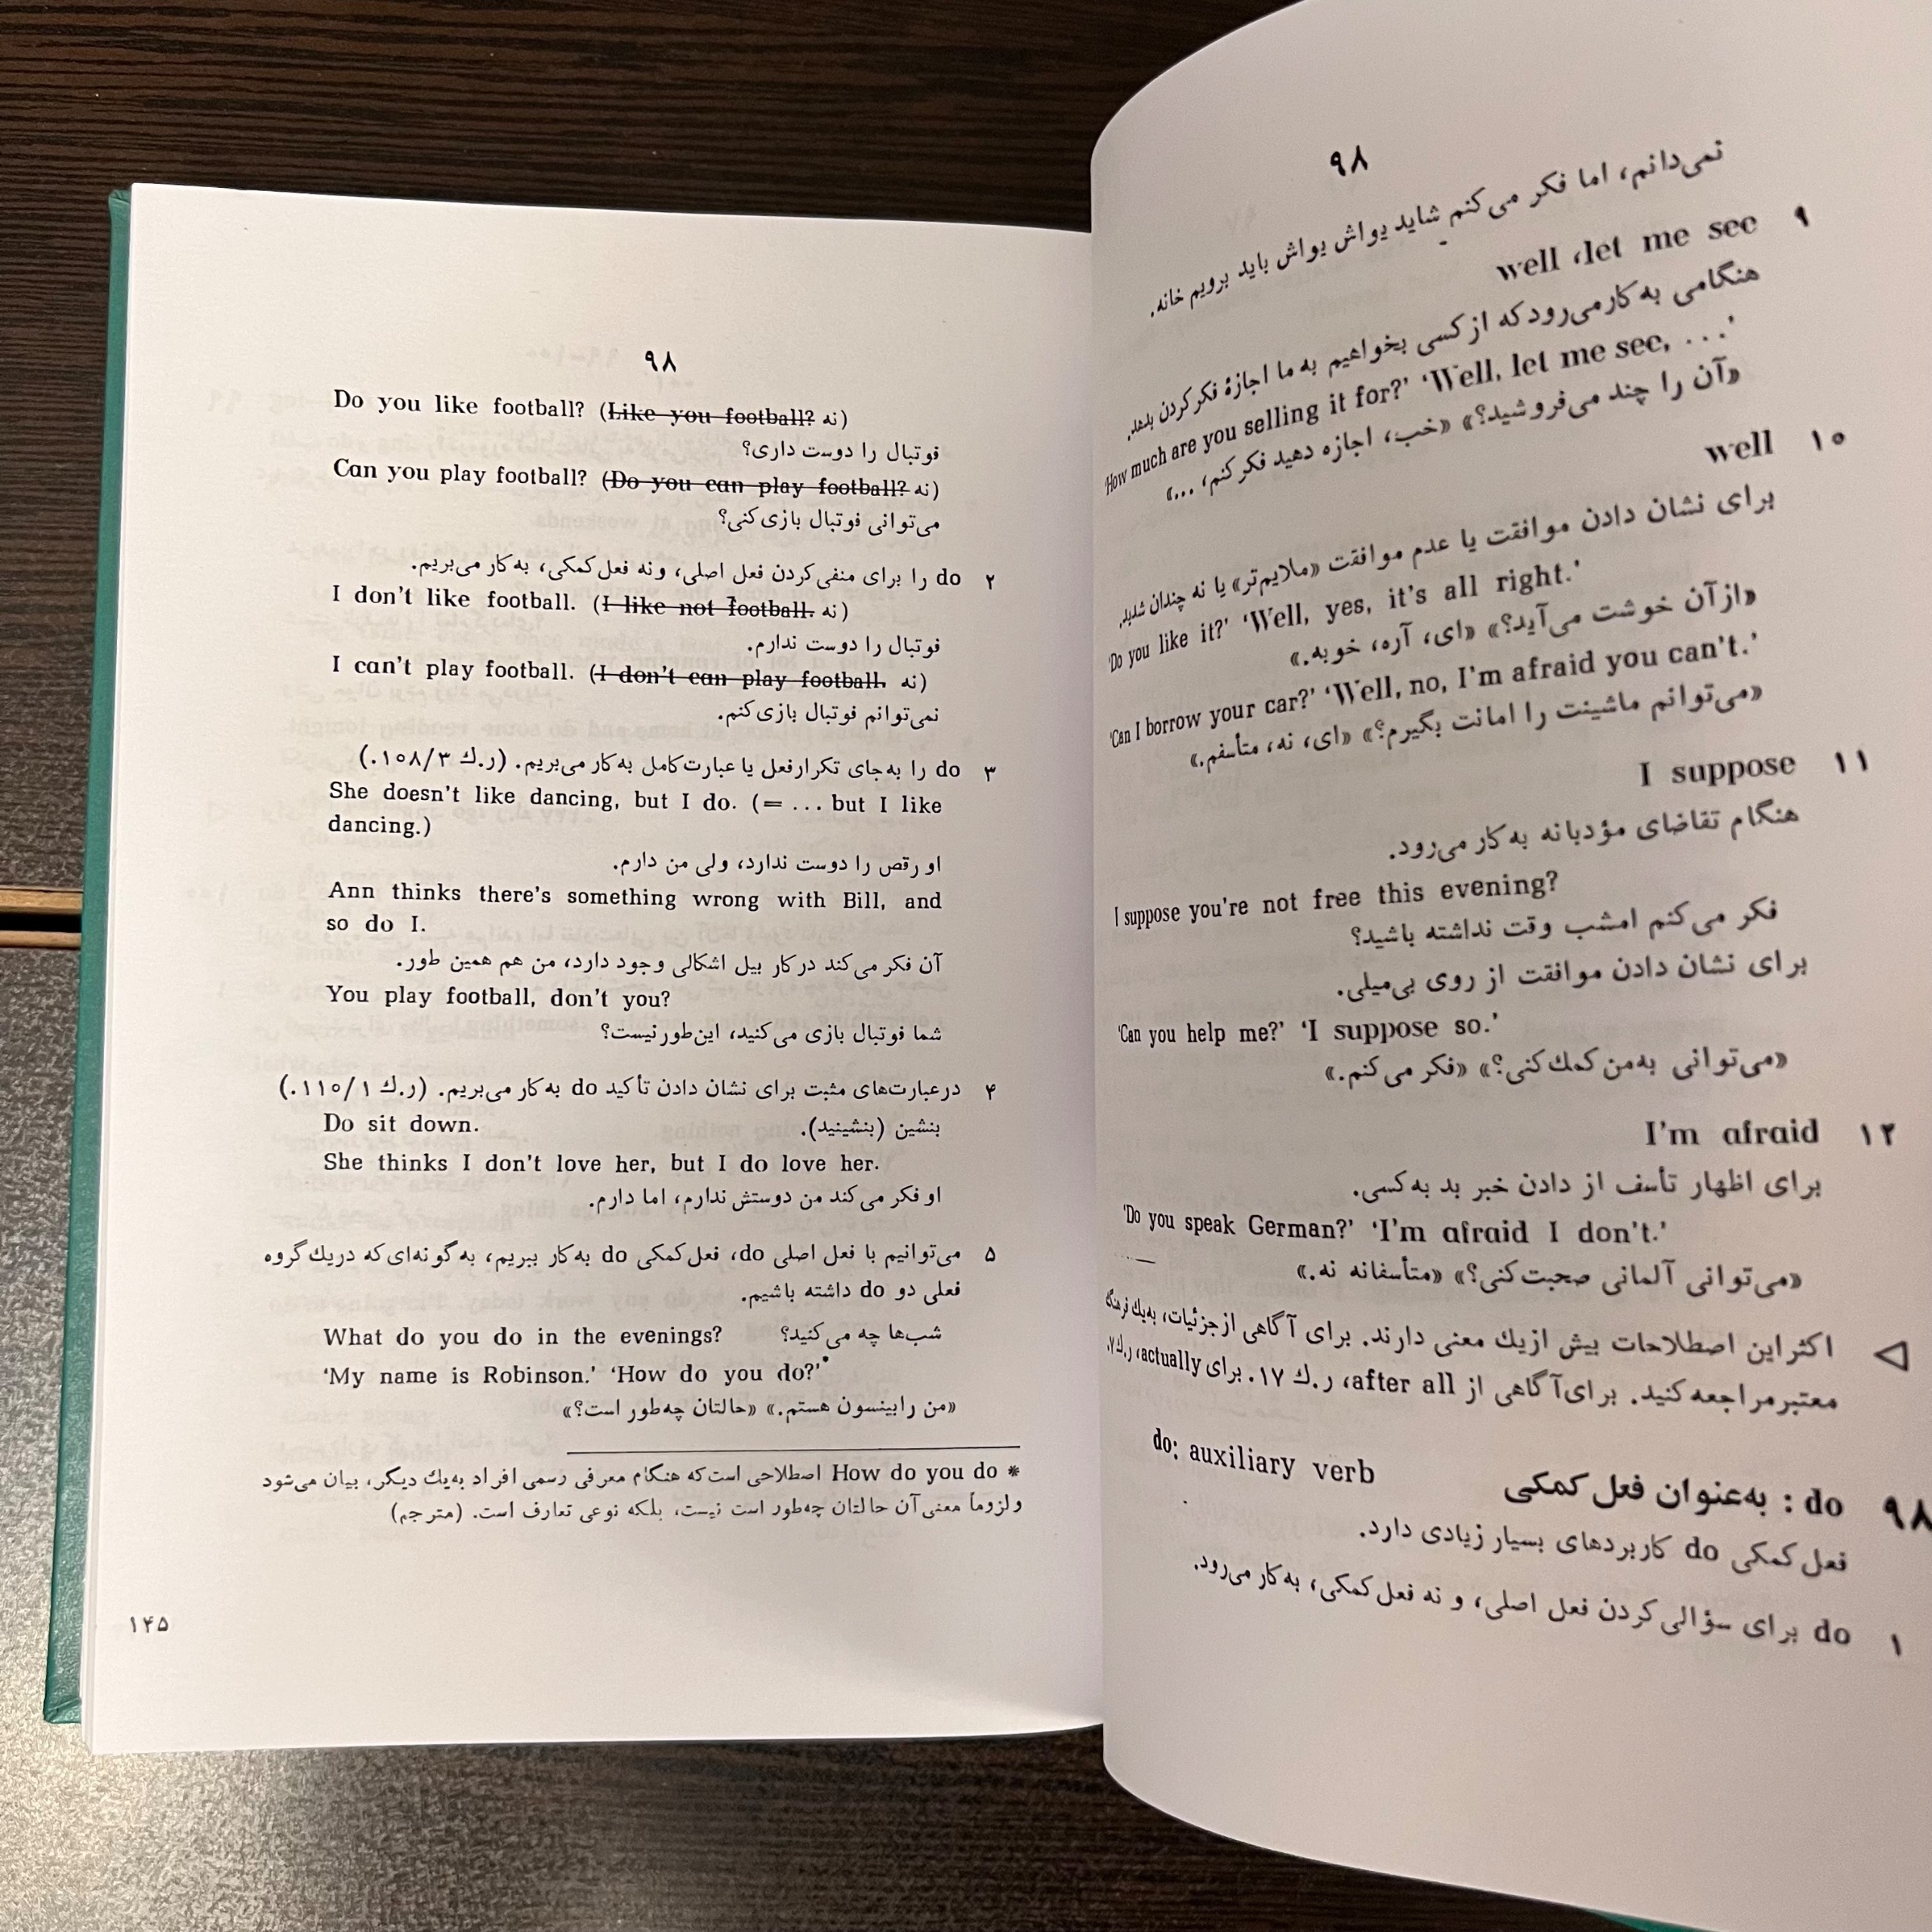 ۹۸
نمی‌دانم، اما فکر می‌کنم شاید یواش یواش باید برویم خانه.
۹ well ،let me see
هنگامی به‌کار می‌رود که از کسی بخواهیم به ما اجازهٔ فکر کردن بدهد.
'How much are you selling it for?' 'Well, let me see, . . .'
«آن را چند می‌فروشید؟» «خب، اجازه دهید فکر کنم، ...»
۱۰ well
برای نشان دادن موافقت یا عدم موافقت «ملایم‌تر» یا نه چندان شدید.
'Do you like it?' 'Well, yes, it's all right.'
«از آن خوشت می‌آید؟» «ای، آره، خوبه.»
'Can I borrow your car?' 'Well, no, I'm afraid you can't.'
«می‌توانم ماشینت را امانت بگیرم؟» «ای، نه، متأسفم.»
۱۱ I suppose
هنگام تقاضای مؤدبانه به‌کار می‌رود.
I suppose you're not free this evening?
فکر می‌کنم امشب وقت نداشته باشید؟
برای نشان دادن موافقت از روی بی‌میلی.
'Can you help me?' 'I suppose so.'
«می‌توانی به‌من کمک کنی؟» «فکر می‌کنم.»
۱۲ I'm afraid
برای اظهار تأسف از دادن خبر بد به‌کسی.
'Do you speak German?' 'I'm afraid I don't.'
«می‌توانی آلمانی صحبت کنی؟» «متأسفانه نه.»
اکثر این اصطلاحات بیش از یك معنی دارند. برای آگاهی از جزئیات، به‌یك فرهنگ
معتبر مراجعه کنید. برای آگاهی از after all، ر.ك ۱۷. برای actually، ر.ك ۷.
do: auxiliary verb
۹۸ do : به‌عنوان فعل کمکی
فعل کمکی do کاربردهای بسیار زیادی دارد.
۱ do برای سؤالی کردن فعل اصلی، و نه فعل کمکی، به‌کار می‌رود.
۹۸
Do you like football? (Like you football? نه)
فوتبال را دوست داری؟
Can you play football? (Do you can play football? نه)
می‌توانی فوتبال بازی کنی؟
۲ do را برای منفی کردن فعل اصلی، ونه فعل کمکی، به‌کار می‌بریم.
I don't like football. (I like not football. نه)
فوتبال را دوست ندارم.
I can't play football. (I don't can play football. نه)
نمی‌توانم فوتبال بازی کنم.
۳ do را به‌جای تکرار فعل یا عبارت کامل به‌کار می‌بریم. (ر.ك ۱۰۸/۳.)
She doesn't like dancing, but I do. (= ... but I like
dancing.)
او رقص را دوست ندارد، ولی من دارم.
Ann thinks there's something wrong with Bill, and
so do I.
آن فکر می‌کند در کار بیل اشکالی وجود دارد، من هم همین طور.
You play football, don't you?
شما فوتبال بازی می‌کنید، این‌طور نیست؟
۴ در عبارت‌های مثبت برای نشان دادن تأکید do به‌کار می‌بریم. (ر.ك ۱۱۰/۱.)
Do sit down. بنشین (بنشینید).
She thinks I don't love her, but I do love her.
او فکر می‌کند من دوستش ندارم، اما دارم.
۵ می‌توانیم با فعل اصلی do، فعل کمکی do به‌کار ببریم، به‌گونه‌ای که در یك گروه
فعلی دو do داشته باشیم.
What do you do in the evenings? شب‌ها چه می‌کنید؟
'My name is Robinson.' 'How do you do?'*
«من رابینسون هستم.» «حالتان چه‌طور است؟»
* How do you do اصطلاحی است که هنگام معرفی رسمی افراد به‌یك دیگر، بیان می‌شود
و لزوماً معنی آن حالتان چه‌طور است نیست، بلکه نوعی تعارف است. (مترجم)
۱۴۵